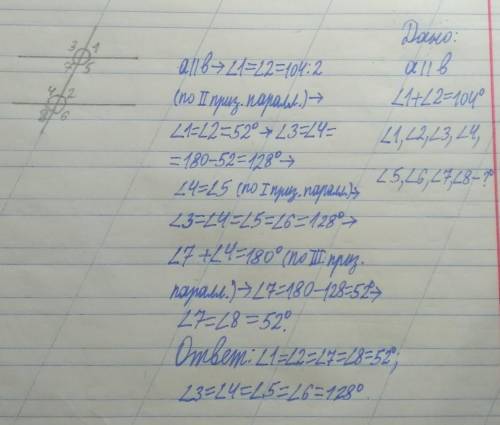 3 1
7 5
4 2
8 6
Дано:
a||b
∠1+∠2=104°
∠1,∠2,∠3,∠4,
∠5,∠6,∠7,∠8-?
a||b→∠1=∠2=104:2
(по II приз. паралл.)→
∠1=∠2=52°→∠3=∠4=
=180-52=128°→
∠4=∠5 (по I приз. паралл.)→
∠3=∠4=∠5=∠6=128°→
∠7+∠4=180° (по III приз.
паралл.)→∠7=180-128=52°→
∠7=∠8=52°.
Ответ: ∠1=∠2=∠7=∠8=52°;
∠3=∠4=∠5=∠6=128°.